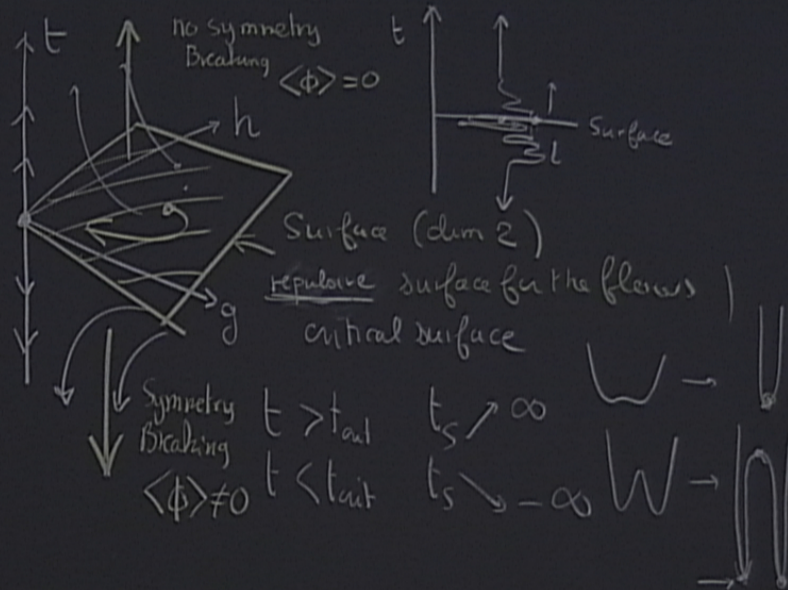 t
no symmetry
Breaking
<ϕ> = 0
h
g
t
Surface
Surface (dim 2)
repulsive surface for the flows
critical surface
g
Symmetry
Breaking
<ϕ> ≠ 0
t > tcrit ts ↗ ∞
t < tcrit ts ↘ -∞